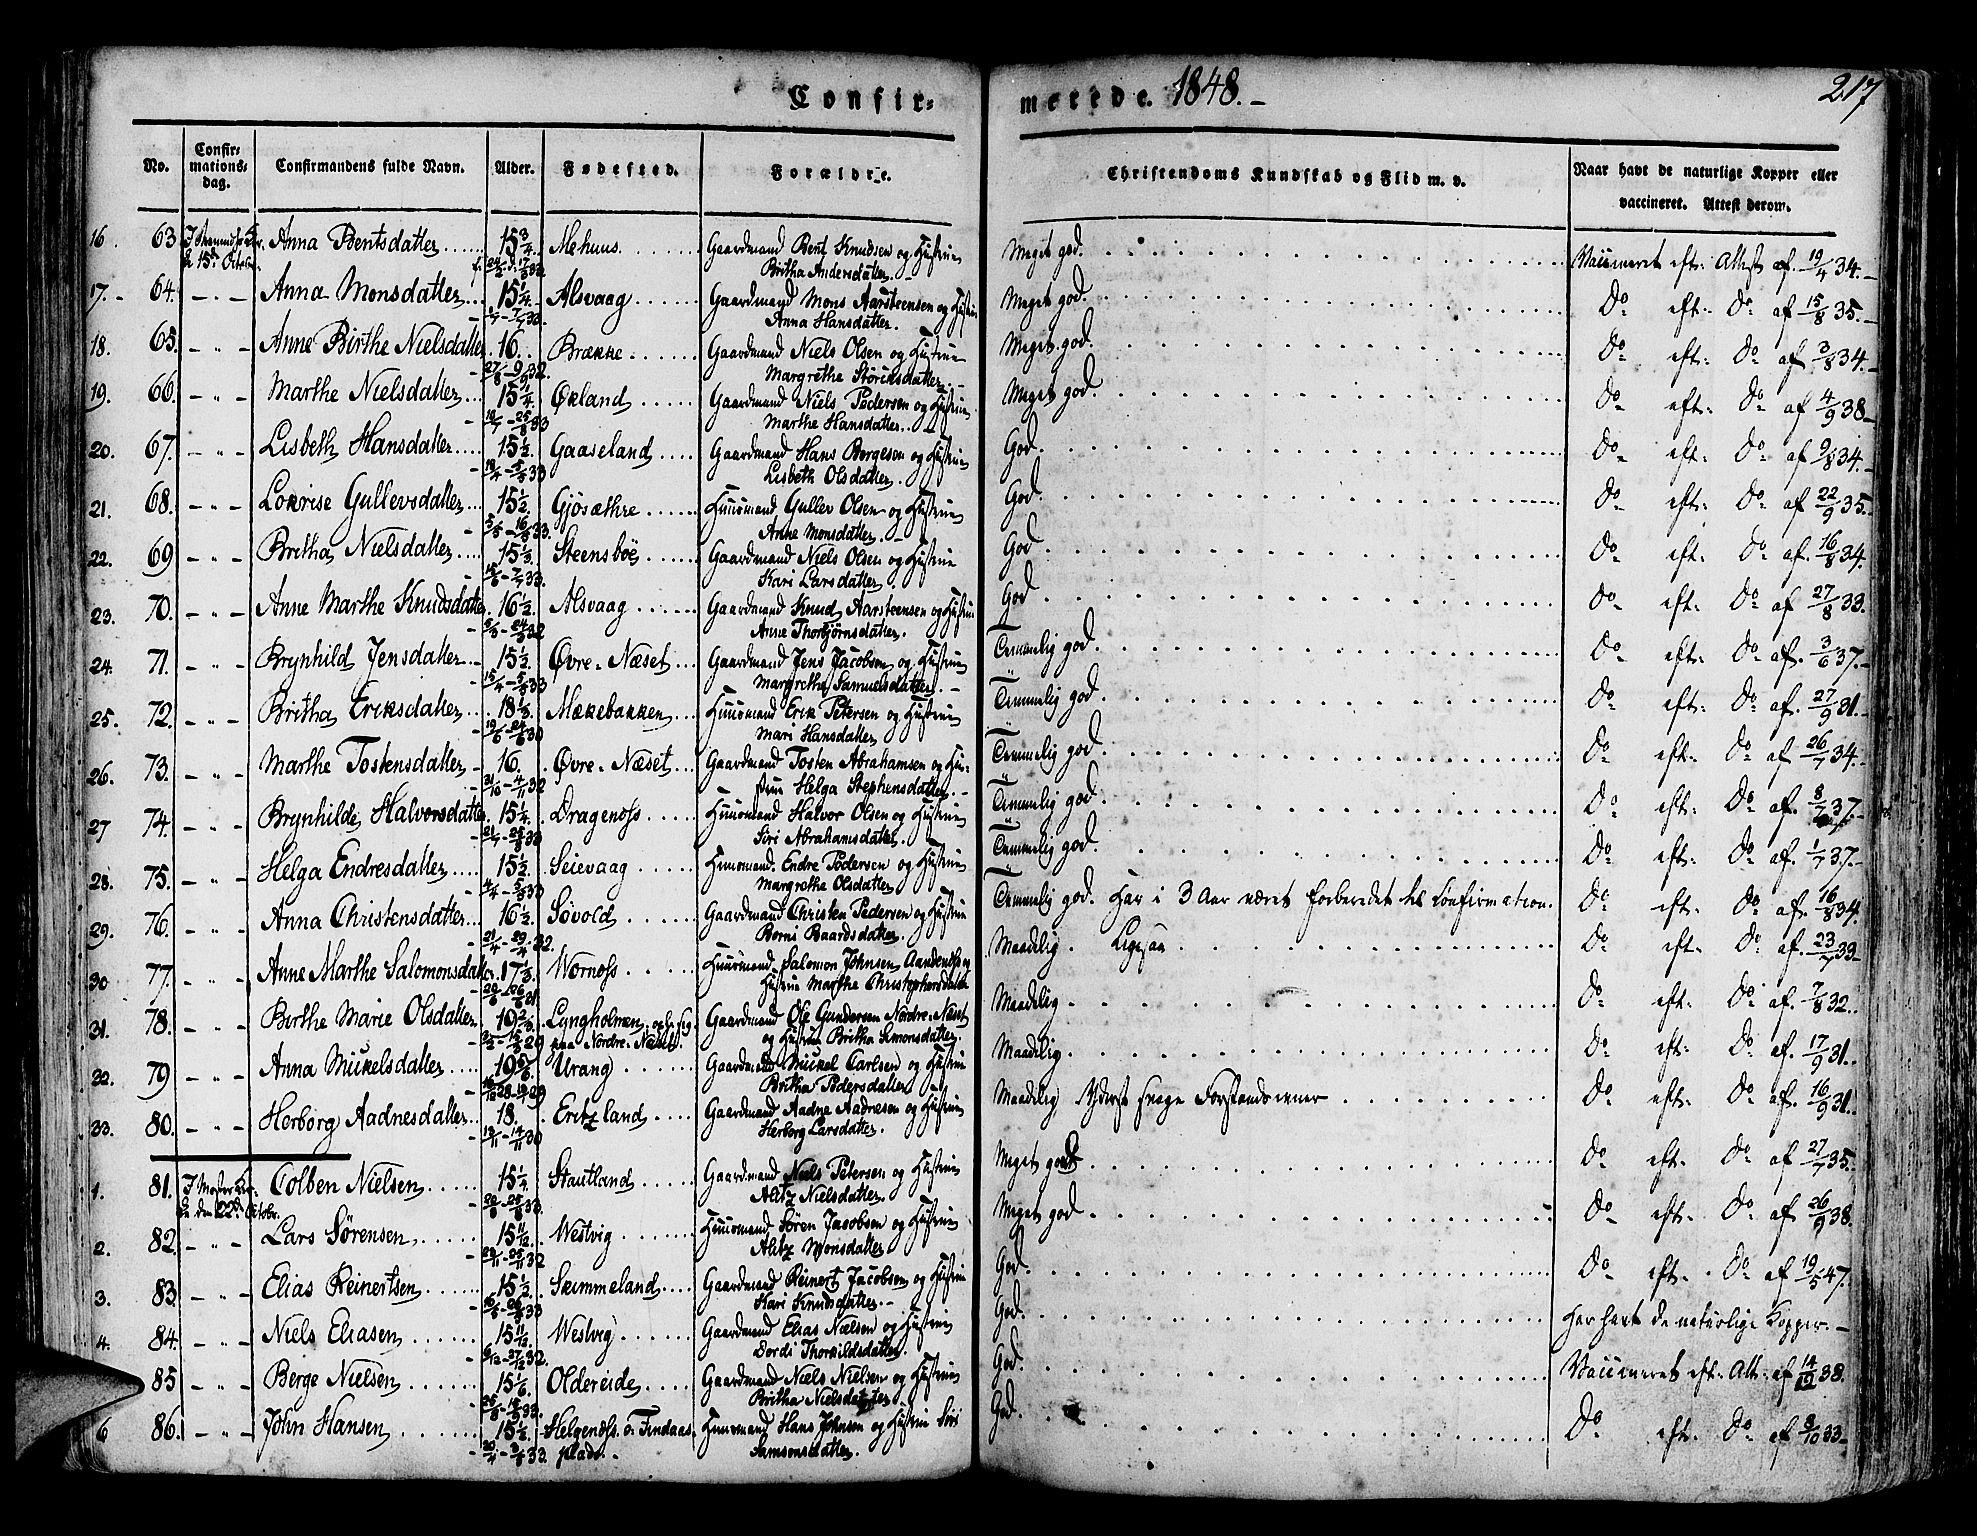 Confir-
merede. 1848.-
217
No.
Confir-
mations-
dag.
Confirmandens fulde Navn.
Alder.
Fødested.
Forældre.
Christendoms Kundskab og Flid m. v.
Naar havt de naturlige Kopper eller
vaccineret. Attest derom.
16. 63 Anna Bentsdatter 15 3/4 Mehuus. Gaardmand Bent Knudsen og Hustrue Meget god. Vaccineret eft. Attest af 19/4 34.
15de October. Britha Andersdatter.
17. 64. - " - Anna Monsdatter 15 1/4 Alsvaag Gaardmand Mons Aarsteensen og Hustrue Meget god. Do eft. Do af 15/8 35.
Anna Hansdatter.
18. 65. - " - Anne Birthe Nielsdatter 16. Brække Gaardmand Niels Olsen og Hustrue Meget god. Do eft. Do af 3/8 34.
27/8 - 9/9 32. Margrethe Størksdatter.
19. 66. - " - Marthe Nielsdatter 15 1/4 Økland Gaardmand Niels Pedersen og Hustrue Meget god. Do eft. Do af 4/9 38
Marthe Hansdatter.
20. 67. - " - Lisbeth Hansdatter 15 1/2 Gaaseland Gaardmand Hans Børgesen og Hustrue God. Do eft. Do af 9/8 34.
Lisbeth Olsdatter.
21. 68. - " - Lovise Gullevsdatter 15 1/2 Gjøsæthre Huusmand Gullev Olsen og Hustrue God. Do eft. Do af 22/9 35.
Anne Monsdatter.
22. 69 - " - Britha Nielsdatter 15 1/3 Steensbøe Gaardmand Niels Olsen og Hustrue God. Do eft. Do af 16/8 34.
Kari Larsdatter.
23. 70. - " - Anne Marthe Knudsdatter. 16 1/2 Alsvaag Gaardmand Knud Aarsteensen og Hustrue God. Do eft. Do af 27/8 33.
Anne Thorbjørnsdatter.
24. 71. - " - Brynhild Jensdatter 15 1/2 Øvre-Næset Gaardmand Jens Jacobsen og Hustrue Temmelig god. Do eft. Do af 3/6 37.
Margrethe Samuelsdatter.
25. 72. - " - Britha Eriksdatter 18 1/3 Mækebakken Huusmand Erik Petersen og Hustrue Temmelig god. Do eft. Do af 27/9 31.
Mari Hansdatter
26. 73. - " - Marthe Tostensdatter 16. Øvre-Næset Gaardmand Tosten Abrahamsen og Hu- Temmelig god. Do eft. Do af 26/7 34.
31/10 - 4/11 32 strue Helga Stephensdatter.
27 74. - " - Brynhilde Halvorsdatter 15 1/4 Dragenøss Huusmand Halvor Olsen og Hustrue Temmelig god. Do eft. Do af 8/7 37.
Siri Abrahamsdatter.
28. 75. - " - Helga Endresdatter 15 1/2 Seievaag Huusmand Endre Pedersen og Hustrue Temmelig god. Do eft. Do af 1/7 37.
Margrethe Olsdatter
29. 76. - " - Anna Christensdatter 16 1/2 Søvold Gaardmand Christen Pedersen og Hustrue Temmelig god. Har i 3 Aar været forberedet til Confirmation. Do eft. Do af 16/8 34.
Berni Baardsdatter.
30 77. - " - Anne Marthe Salomonsdatter 17 1/3 Wornøss Huusmand Salomon Johnsen Aandenøss og Maadelig. Ligesaa Do eft. Do af 23/7 33
Hustrue Marthe Christophersdatter
31. 78. - " - Birthe Marie Olsdatter 19 2/3 Lyngholmen, oph. sig Gaardmand Ole Gundersen Nordre-Næset Maadelig Do eft. Do af 7/8 32.
paa Nordre-Næset. og Hustrue Britha Simonsdatter.
32. 79 - " - Anna Mickelsdatter 19 5/6 Urang Gaardmand Mickel Carlsen og Hustrue Maadelig. Do eft. Do af 17/9 31.
Britha Pedersdatter
33. 80. - " - Herborg Aadnesdatter 18. Eritzland Gaardmand Aadne Aadnesen og Hustrue Maadelig Yderst svage Forstandsevner Do eft. Do af 16/9 31.
Herborg Larsdatter.
1. 81. Colben Nielsen 15 1/4 Stautland Gaardmand Niels Petersen og Hustrue Meget godt Do eft. Do af 27/7 35.
den 22de Octobr. Alitz Nielsdatter
2. 82. - " - Lars Sørensen 15 11/12 Westvig Huusmand Søren Jacobsen og Hustrue Meget god Do eft. Do af 26/9 38.
Alitz Monsdatter
3. 83. - " - Elias Reinertsen 15 1/2 Skimmeland Gaardmand Reinert Jacobsen og Hustrue God. Do eft. Do af 19/5 47.
Kari Knudsdatter.
4. 84. - " - Niels Eliasen 15 11/12 Westvig Gaardmand Elias Nielsen og Hustrue God. Har havt de naturlige Kopper.
Dordi Thorkildsdatter.
85 - " - Berge Nielsen 15 1/6 Oldereide Gaardmand Niels Nielsen og Hustrue God. Vaccineret eft. Att. af 14/12 38.
Britha Nielsdatter
6 86. - " - John Hansen 15 1/2 Helgenøss. o. Findaas. Huusmand Hans Johnsen og Hustrue Siri God. Do eft. Do af 8/10 33
plads. Samsonsdatter.